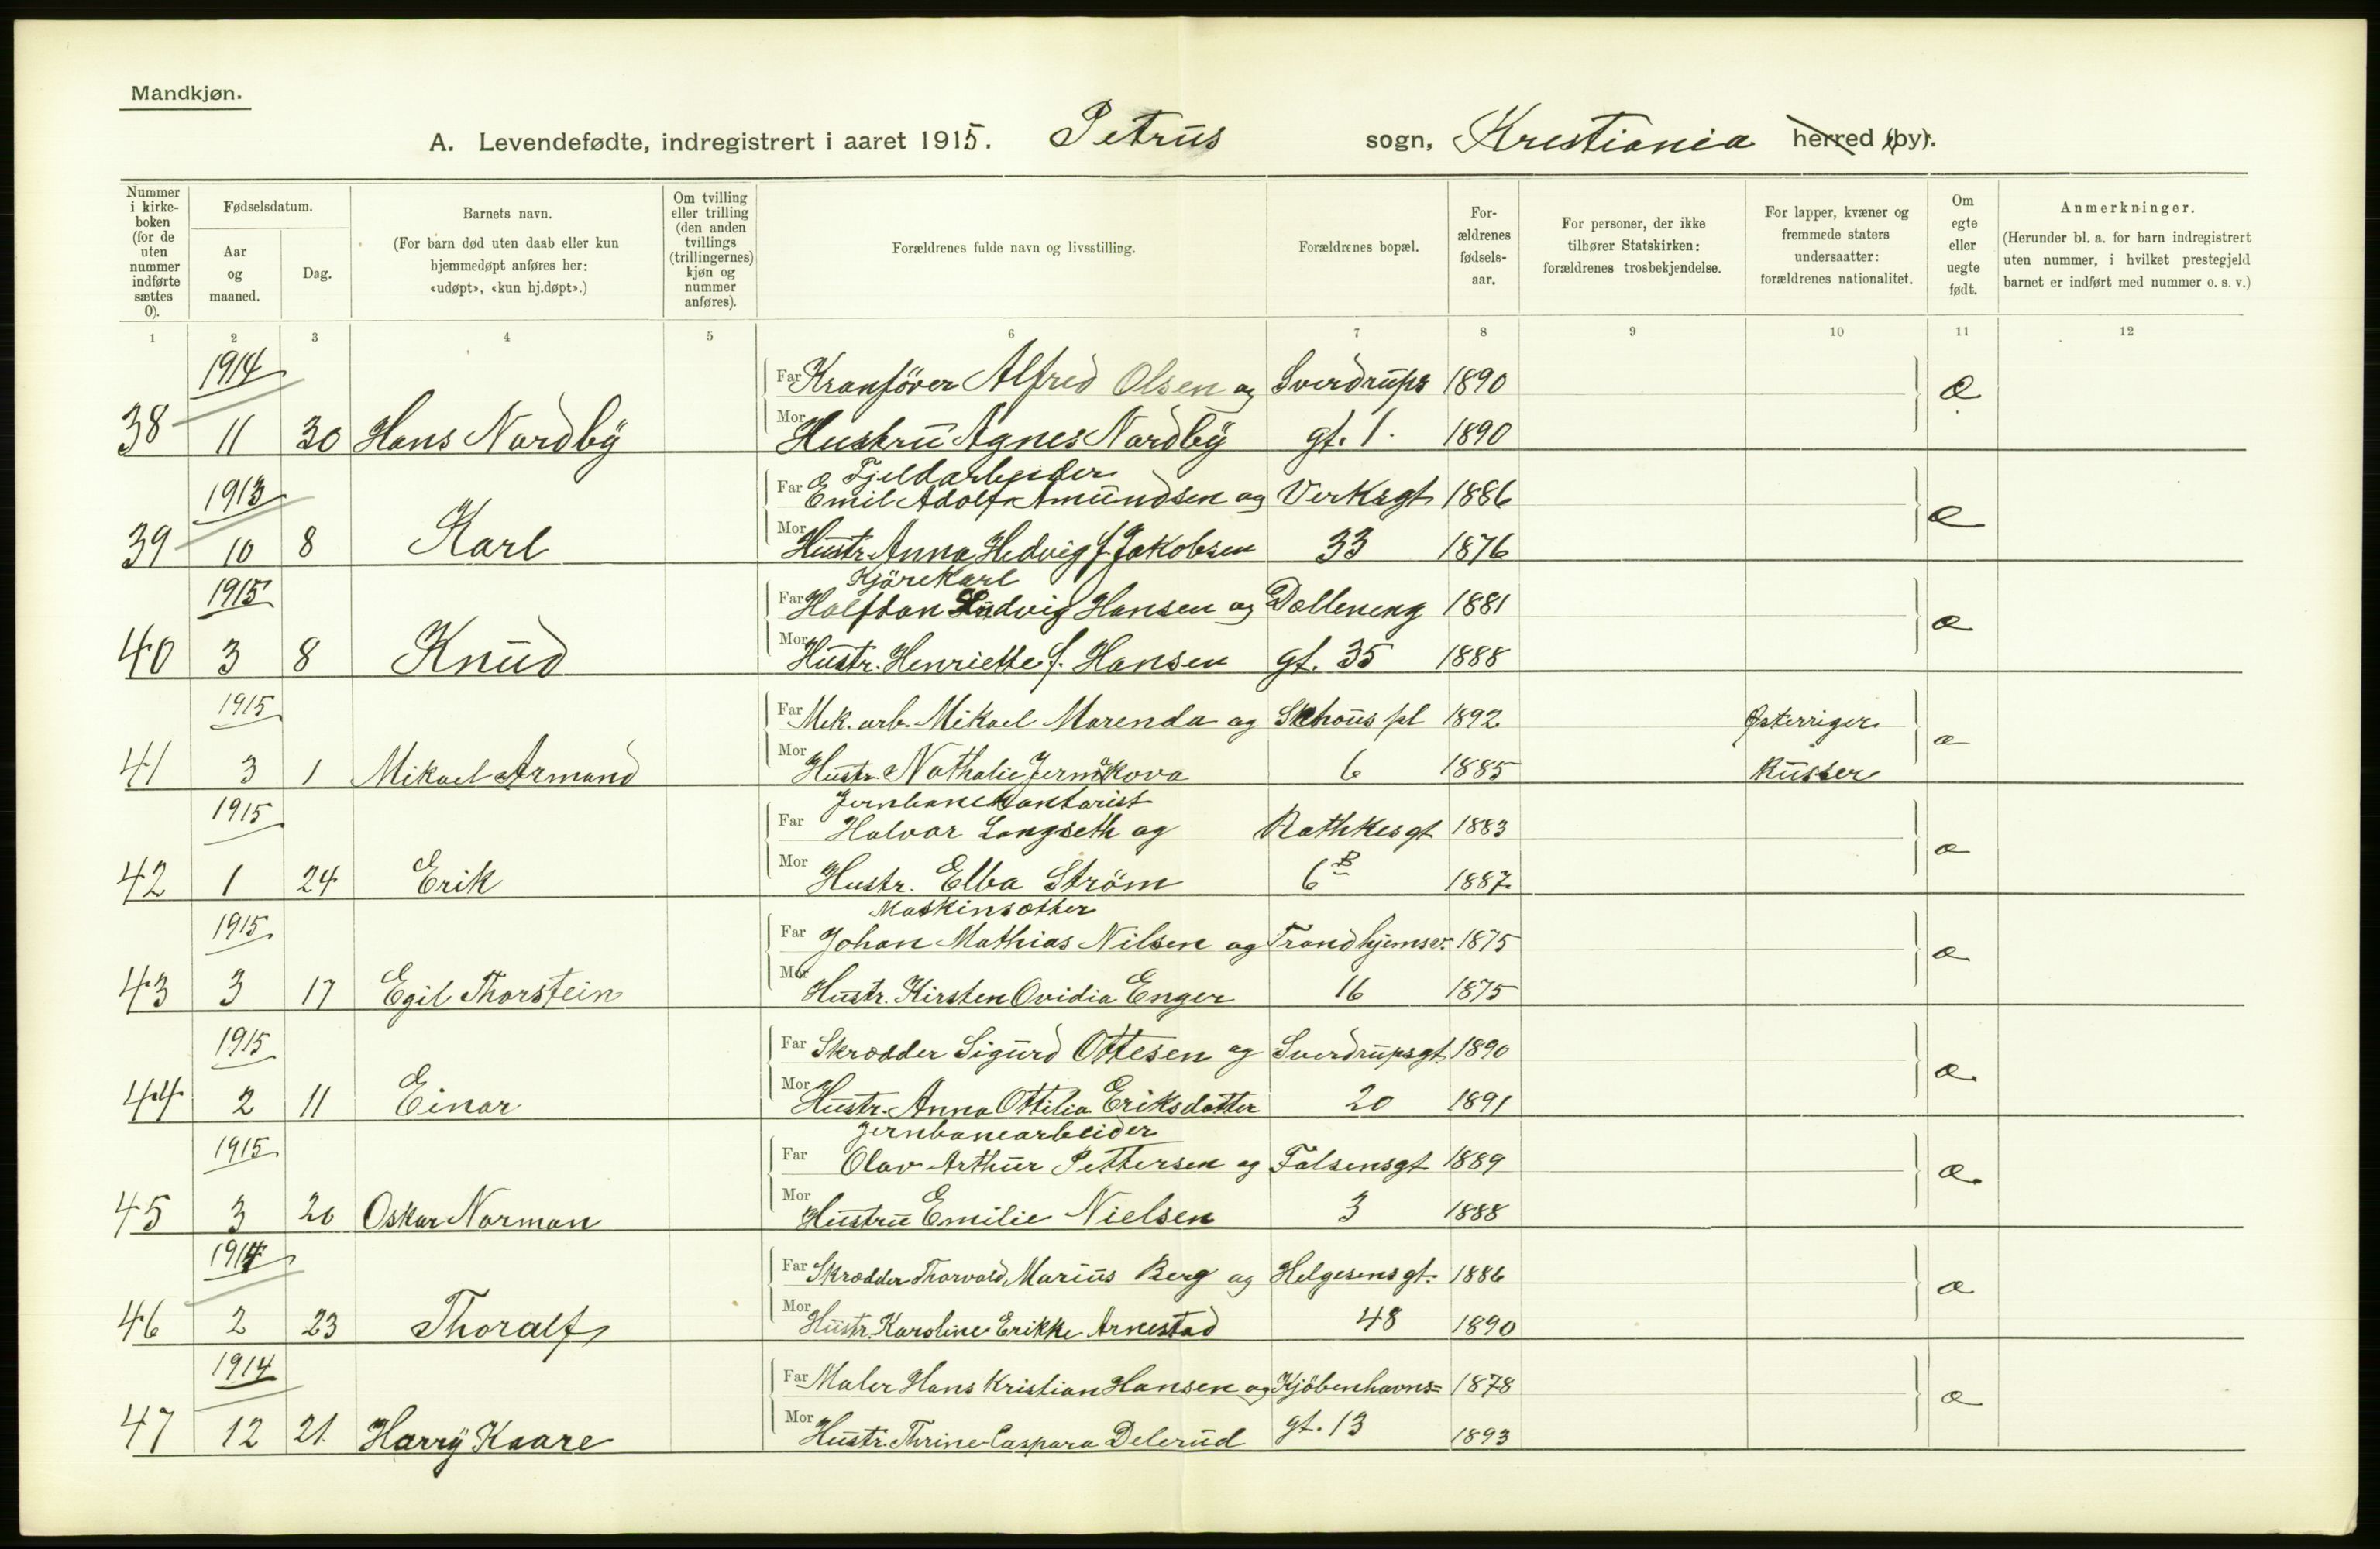 Mandkjøn.
A. Levendefødte, indregistrert i aaret 1915. Petrus sogn, Krestiania herred (by).
Nummer i kirke-boken (for de uten nummer indførte sættes 0).
Fødselsdatum.
Aar og maaned.
Dag.
Barnets navn.
(For barn død uten daab eller kun hjemmedøpt anføres her: «udøpt», «kun hj.døpt».)
Om tvilling eller trilling (den anden tvillings (trillingernes) kjøn og nummer anføres).
Forældrenes fulde navn og livsstilling.
Forældrenes bopæl.
For-ældrenes fødsels-aar.
For personer, der ikke tilhører Statskirken: forældrenes trosbekjendelse.
For lapper, kvæner og fremmede staters undersaatter: forældrenes nationalitet.
Om egte eller uegte født.
Anmerkninger.
(Herunder bl. a. for barn indregistrert uten nummer, i hvilket prestegjeld barnet er indført med nummer o. s. v.)
1 2 3 4 5 6 7 8 9 10 11 12
1914 Far Kranförer Alfred Olsen og Sverdrups 1890 e
38 11 30 Hans Nordby Mor Hustru Agnes Nordby gt. 1. 1890
Fjeldarbeider
1913 Far Emil Adolf Amundsen og Verksgt 1886 e
39 10 8 Karl Mor Hustr. Anna Hedvig f. Jakobsen 33 1876
Kjörekarl
1915 Far Halfdan Ludvig Hansen og Dælleneng 1881 e
40 3 8 Knud Mor Hustr. Henriette f. Hansen gt. 35 1888
1915 Far Mek. arb. Mikael Marenda og Schous pl 1892 Østerriger e
41 3 1 Mikael Armand Mor Hustr. Nathalie 6 1885 Russer
Jernbanekontorist
1915 Far Halvor Langseth og Rathkesgt 1883 e
42 1 24 Erik Mor Hustr. Elba Ström 6 B 1887
Maskinsætter
1915 Far Johan Mathias Nilsen og Trondhjemsv. 1875 e
43 3 17 Egil Thorstein Mor Hustr. Kirsten Ovidia Enger 16 1875
1915 Far Skrædder Sigurd Ottesen og Sverdrupsgt 1890 e
44 2 11 Einar Mor Hustr. Anna Ottilia Eriksdatter 20 1891
Jernbanearbeider
1915 Far Olav Arthur Pettersen og Falsensgt 1889 e
45 3 20 Oskar Norman Mor Hustru Emilie Nielsen 3 1888
1914 Far Skrædder Thorvald Marius Berg og Helgesensgt. 1886 e
46 2 23 Thoralf Mor Hustr. Karoline Erikke Arnestad 48 1890
1914 Far Maler Hans Kristian Hansen og Kjöbenhavns= 1878 e
47 12 21 Harry Kaare Mor Hustr. Thrine Caspara Delerud gt. 13 1893